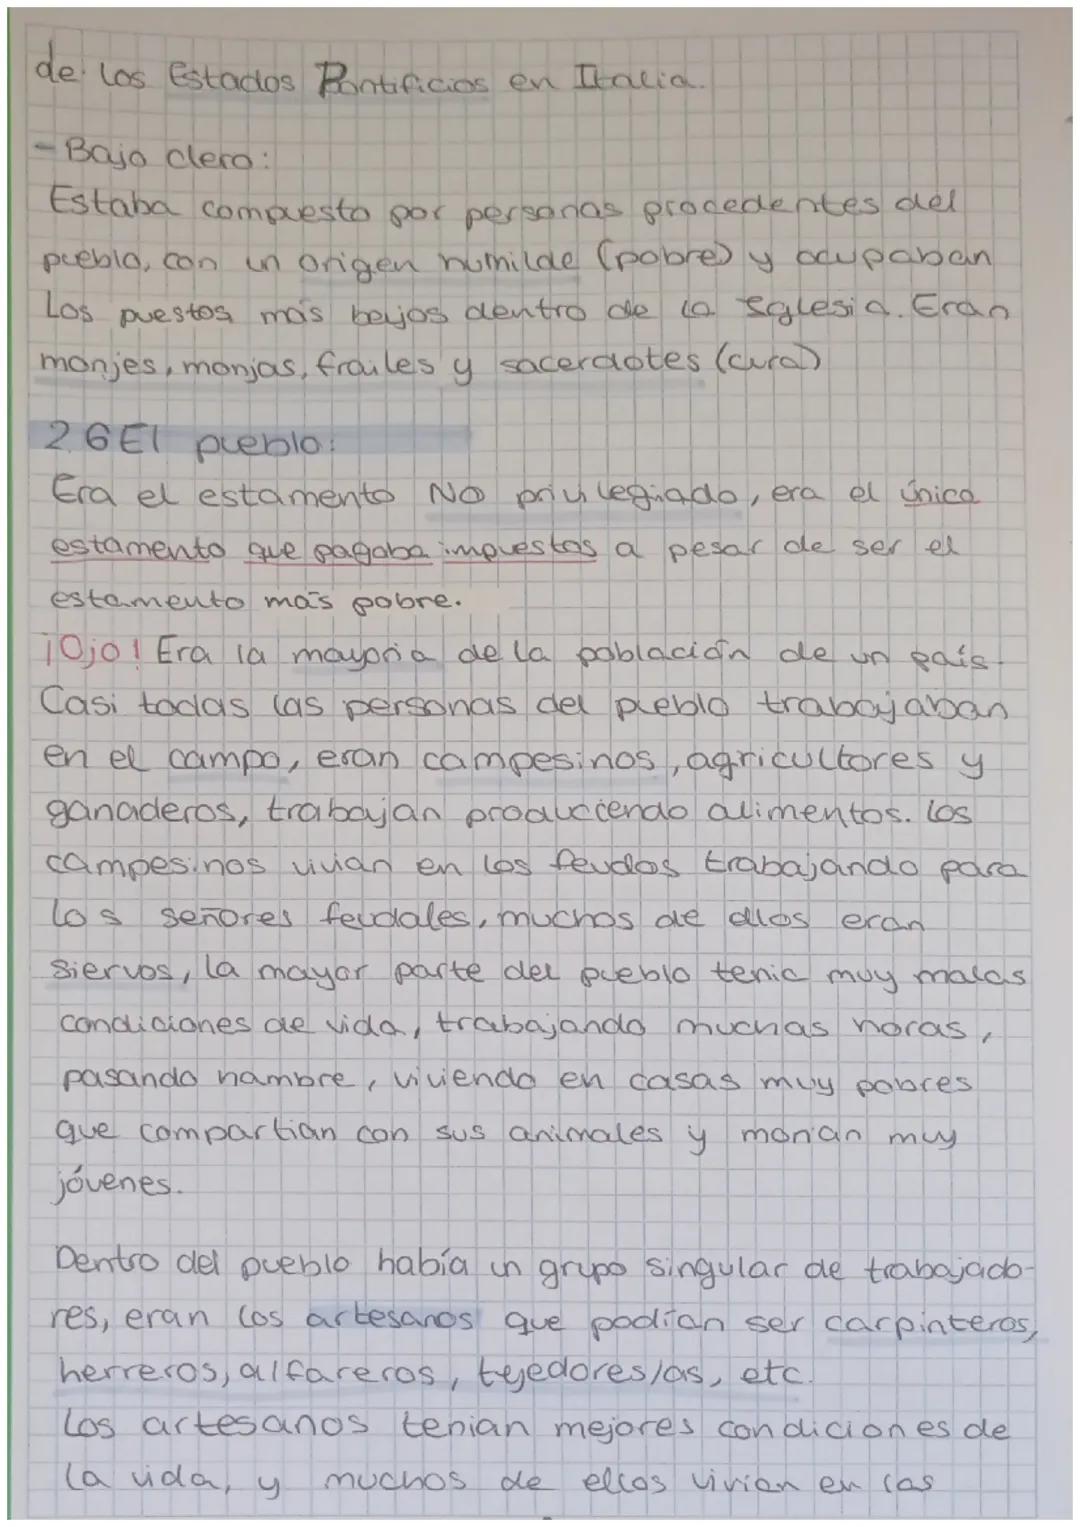 de los Estados Pontificios en Italia.
- Bajo clero:
Estaba compuesto por personas procedentes del
pueblo, con un origen humilde (pobre) y ocupaban
los puestos más bajos dentro de la Iglesia. Eran
monjes, monjas, frailes y sacerdotes (cura)
2.6 El pueblo:
Era el estamento NO privilegiado, era el único
estamento que pagaba impuestos a pesar de ser el
estamento más pobre.
¡Ojo! Era la mayoria de la población de un país.
Casi todas las personas del pueblo trabajaban
en el campo, eran campesinos, agricultores y
ganaderos, trabajan produciendo alimentos. Los
campesinos vivian en los feudos trabajando para
los señores feudales, muchos de ellos eran
siervos, la mayor parte del pueblo tenia muy malas
condiciones de vida, trabajando muchas horas,
pasando hambre, viviendo en casas muy pobres
que compartian con sus animales y morian muy
jóvenes.
Dentro del pueblo había un grupo singular de trabajado-
res, eran los artesanos que podían ser carpinteros,
herreros, alfareros, tejedores/as, etc.
Los artesanos tenian mejores condiciones de
la vida, y muchos de ellos vivian en las